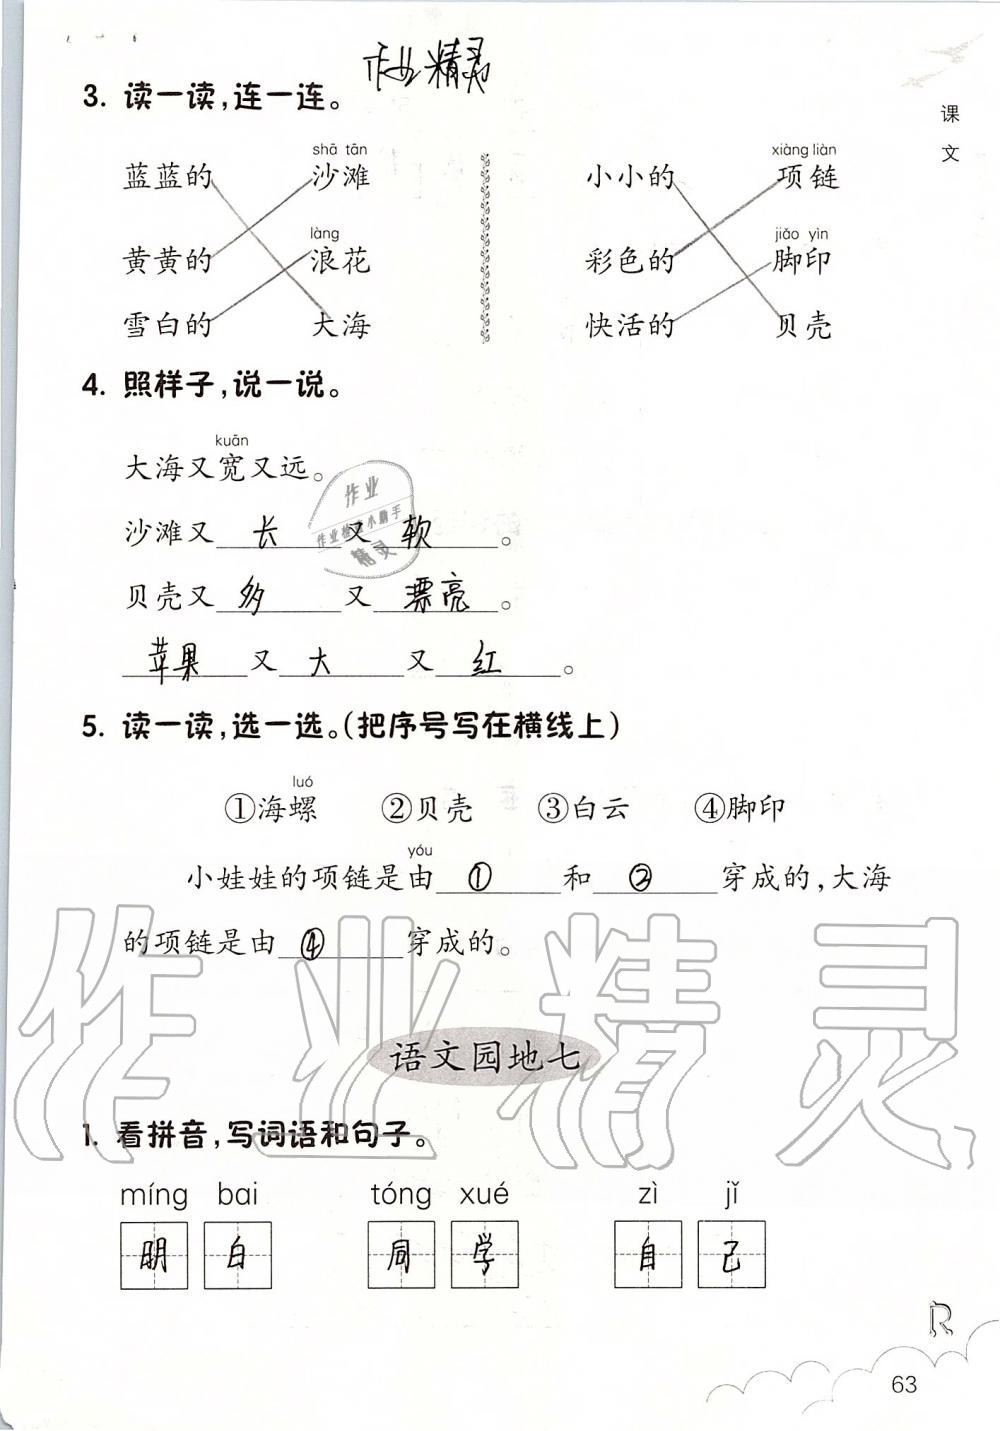 作业精灵
3. 读一读,连一连。
课文
shā tān
xiàng liàn
蓝蓝的 沙滩 小小的 项链
làng
jiǎo yìn
黄黄的 浪花 彩色的 脚印
雪白的 大海 快活的 贝壳
4. 照样子,说一说。
kuān
大海又宽又远。
沙滩又 长 又 软 。
贝壳又 多 又 漂亮 。
苹果 又 大 又 红 。
作业
作业检查小助手
精灵
5. 读一读,选一选。(把序号写在横线上)
luó
①海螺 ②贝壳 ③白云 ④脚印
yóu
小娃娃的项链是由 ① 和 ② 穿成的,大海
的项链是由 ④ 穿成的。
作业精灵
语文园地七
1. 看拼音,写词语和句子。
míng bai tóng xué zì jǐ
明白 同学 自己
R
63